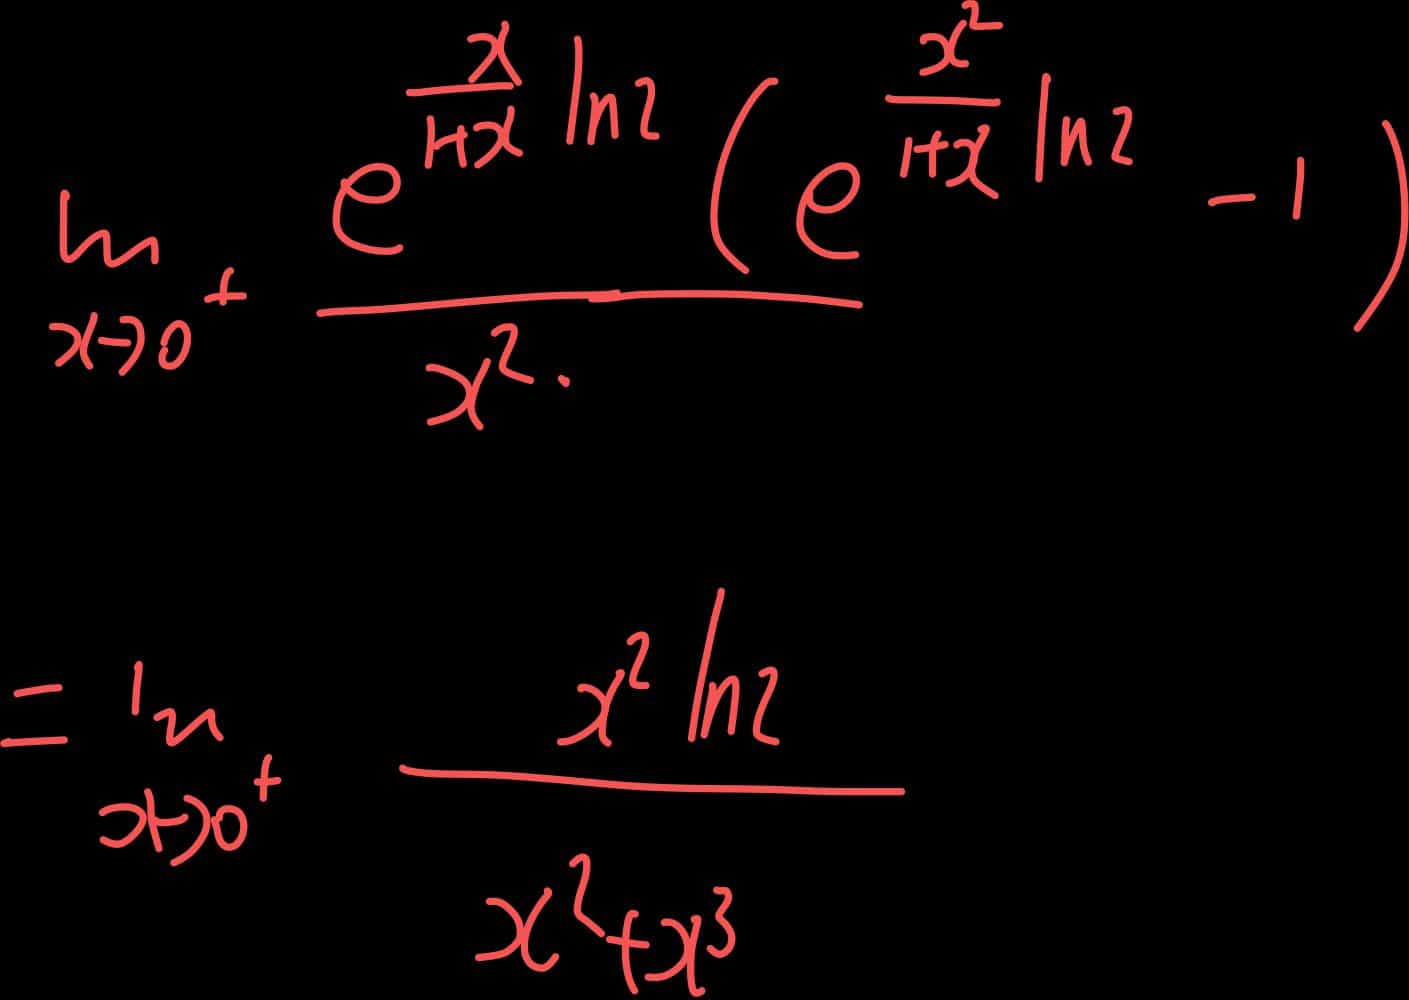 lim x→0⁺ e^(x/(1+x) ln2) (e^(x²/(1+x) ln2) - 1) / x² ·
= lim x→0⁺ x² ln2 / (x² + x³)